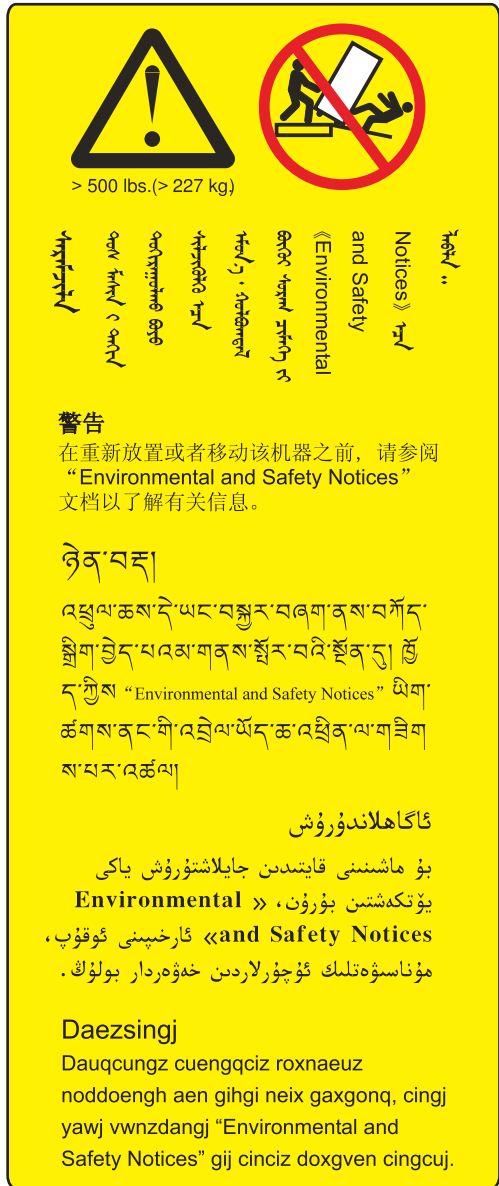 > 500 lbs.(> 227 kg)
《Environmental
and Safety
Notices》
警告
在重新放置或者移动该机器之前，请参阅
“Environmental and Safety Notices”
文档以了解有关信息。
ཉེན་བརྡ།
འཕྲུལ་ཆས་དེ་ཡང་བསྐྱར་བཞག་ནས་བཀོད་
སྒྲིག་བྱེད་པའམ་གནས་སྤོར་བའི་སྔོན་དུ། ཁྱོ
ད་ཀྱིས “Environmental and Safety Notices” ཡིག་
ཚགས་ནང་གི་འབྲེལ་ཡོད་ཆ་འཕྲིན་ལ་གཟིག
ས་པར་འཚལ།
ئاگاهلاندۇرۇش
بۇ ماشىنىنى قايتىدىن جايلاشتۇرۇش ياكى
يۆتكەشتىن بۇرۇن، « Environmental
and Safety Notices» ئارخىپىنى ئوقۇپ،
مۇناسىۋەتلىك ئۇچۇرلاردىن خەۋەردار بولۇڭ.
Daezsingj
Dauqcungz cuengqciz roxnaeuz
noddoengh aen gihgi neix gaxgonq, cingj
yawj vwnzdangj “Environmental and
Safety Notices” gij cinciz doxgven cingcuj.